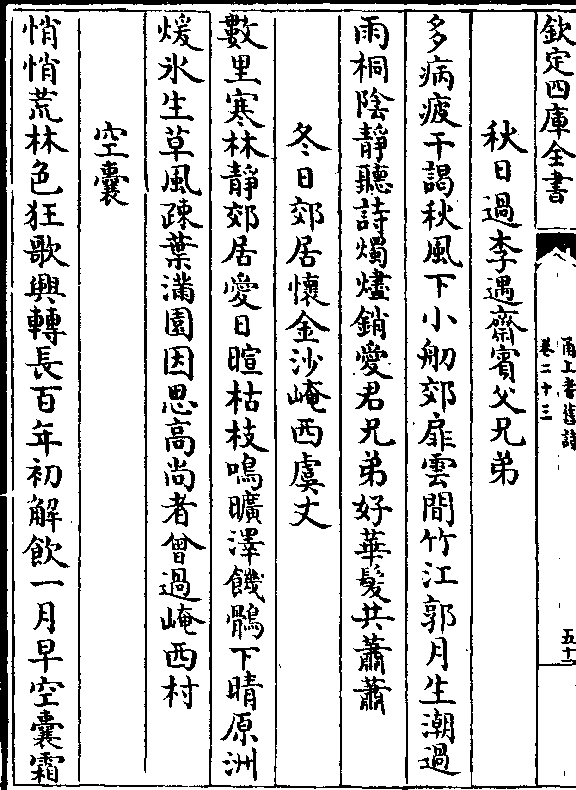 欽定四庫全書
卷二十三
秋日過李遇齋賓父兄弟
多病疲干謁秋風下小舠郊扉雲間竹江郭月生潮過
雨桐陰靜聽詩燭燼銷愛君兄弟好華髪共蕭蕭
冬日郊居懷金沙崦西虞丈
數里寒林靜郊居愛日暄枯枝鳴曠澤饑鶻下晴原洲
煖氷生草風疎葉滿園因思高尚者曾過崦西村
空囊
悄悄荒林色狂歌興轉長百年初解飲一月早空囊霜